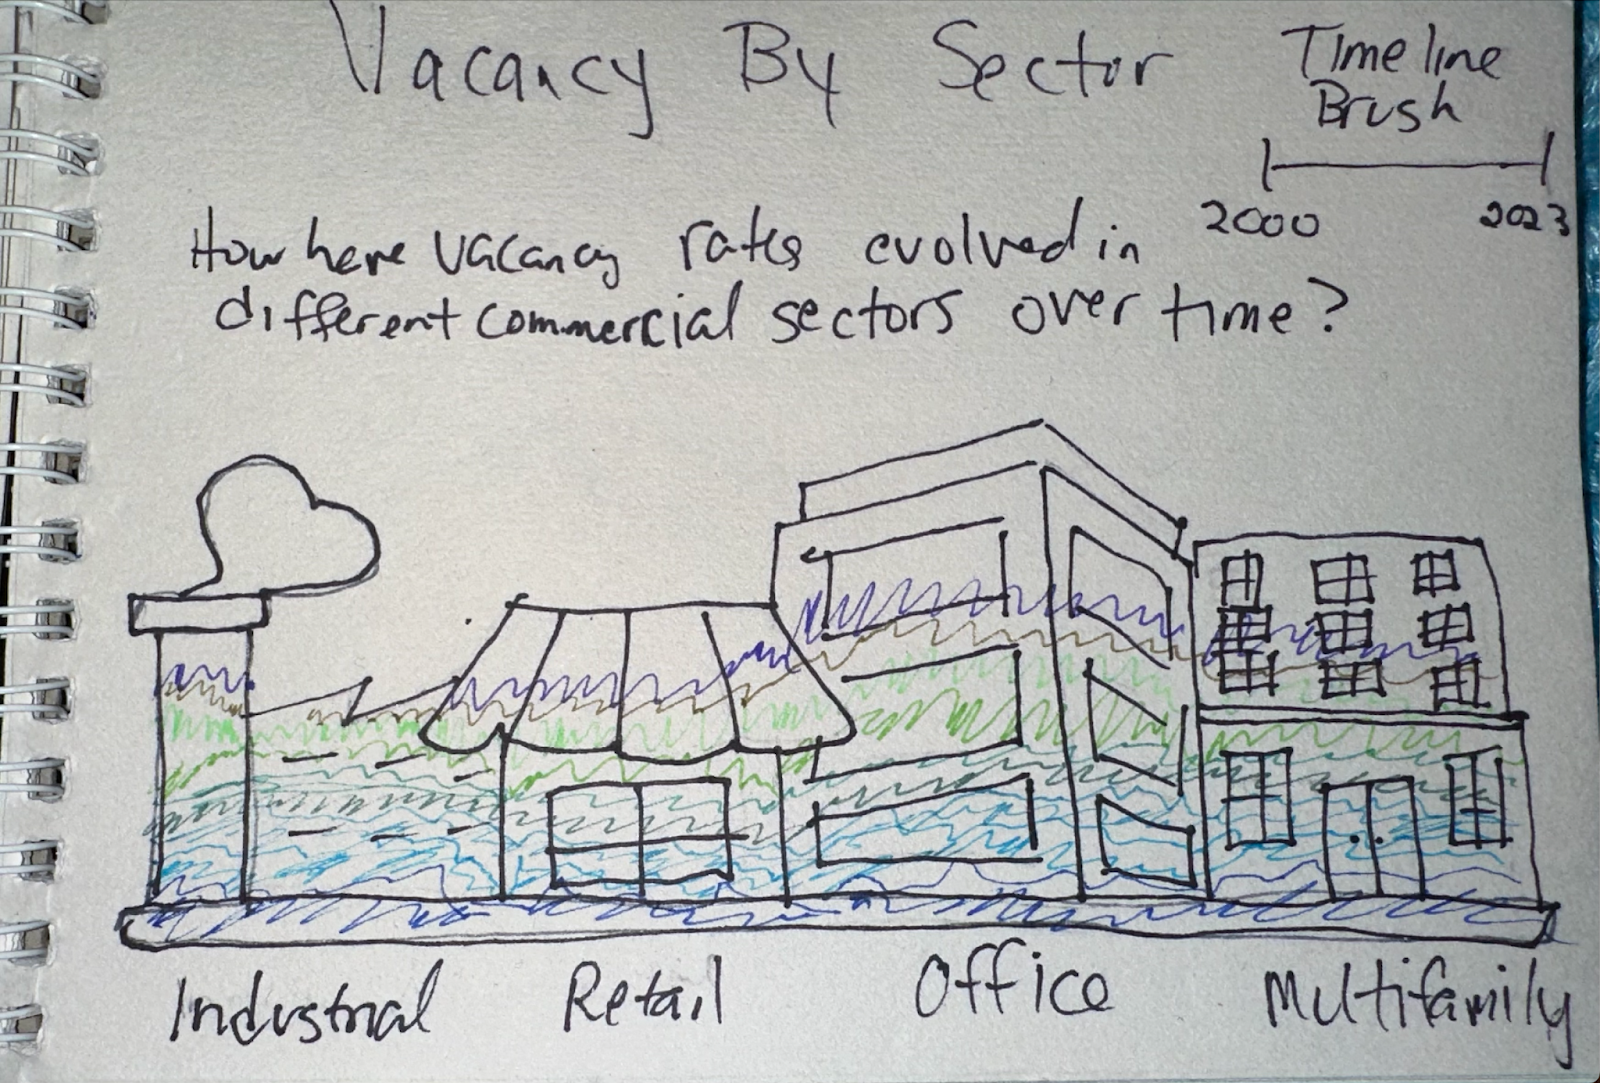 Vacancy By Sector
Timeline
Brush
2000 2023
How have vacancy rates evolved in
different commercial sectors over time?
Industrial Retail Office Multifamily